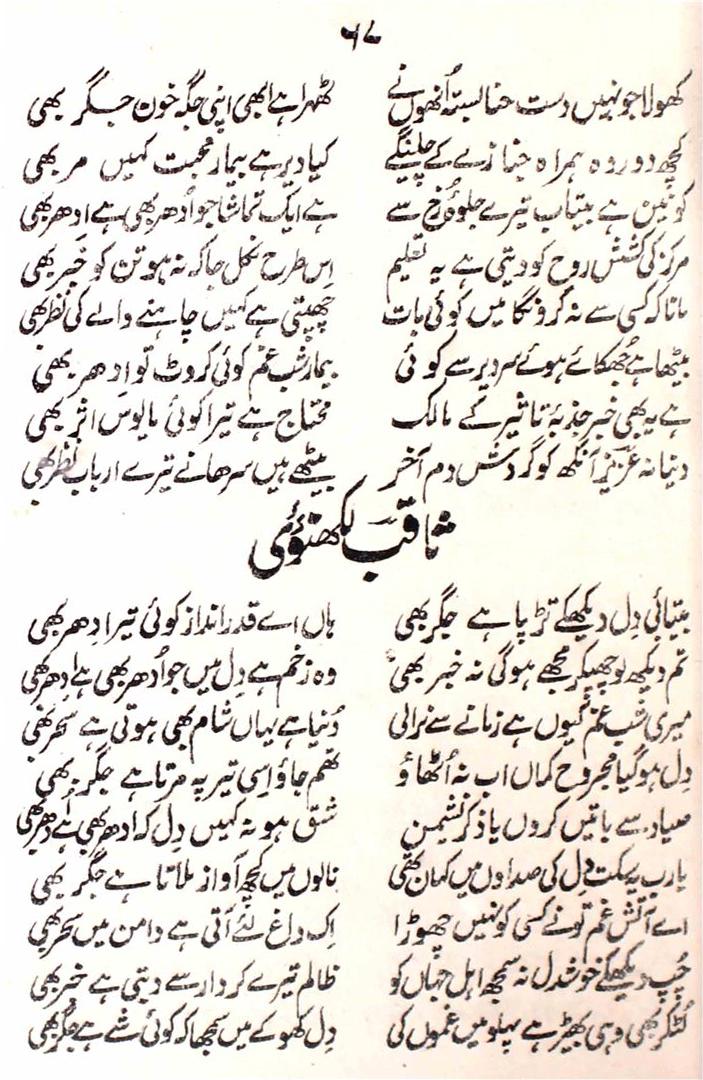 ۶۷
کھولا جو نہیں دست حنا بستہ اُنھوں نے ٹھہرا ہے ابھی اپنی جگہ خون جگر بھی
کچھ دور وہ ہمراہ جنازے کے چلینگے کیا دیر ہے بیمار محبت کہیں مر بھی
کونین ہے بیتاب تیرے جلوۂ رخ سے ہے ایک تماشا جو اُدھر بھی ہے ادھر بھی
مرکز کی کشش روح کو دیتی ہے یہ تعلیم اِس طرح نکل جا کہ نہ ہو تن کو خبر بھی
مانا کہ کسی سے نہ کرونگا میں کوئی بات چھپتی ہے کہیں چاہنے والے کی نظر بھی
بیٹھا ہے جُھکائے ہوئے سر دیر سے کوئی بیمار شب غم کوئی کروٹ تو اِدھر بھی
ہے یہ بھی خبر جذبۂ تاثیر کے مالک محتاج ہے تیرا کوئی مایوس اثر بھی
دنیا نہ عزیز آنکھ کو گردش دم آخر بیٹھے ہیں سرھانے تیرے ارباب نظر بھی
ثاقب لکھنوی
بیتابی دِل دیکھکے تڑپا ہے جگر بھی ہاں اے قدر انداز کوئی تیر اِدھر بھی
تم دیکھ لو چھپکر مجھے ہوگی نہ خبر بھی وہ زخم ہے دِل میں جو اُدھر بھی ہے اِدھر بھی
میری شب غم کیوں ہے زمانے سے نرالی دُنیا ہے یہاں شام بھی ہوتی ہے سحر بھی
دِل ہوگیا مجروح کماں اب نہ اُٹھاؤ تھم جاؤ اِسی تیر پہ مرتا ہے جگر بھی
صیاد سے باتیں کروں یا ذکر نشیمن شق ہو نہ کہیں دِل کہ ادھر بھی ہے اُدھر بھی
یارب یہ سکت دِل کی صداوں میں کہاں تھی نالوں میں کچھ آواز ملاتا ہے جگر بھی
اے آتش غم تونے کسی کو نہیں چھوڑا اِک داغ لئے آتی ہے دامن میں سحر بھی
چُپ دیکھکے خوشدل نہ سمجھ اہل جہاں کو ظالم تیرے کردار سے دیتی ہے خبر بھی
لٹکر بھی وہی بھیڑ ہے پہلو میں غموں کی دِل کھو کے میں سمجھا کہ کوئی شے ہے جگر بھی